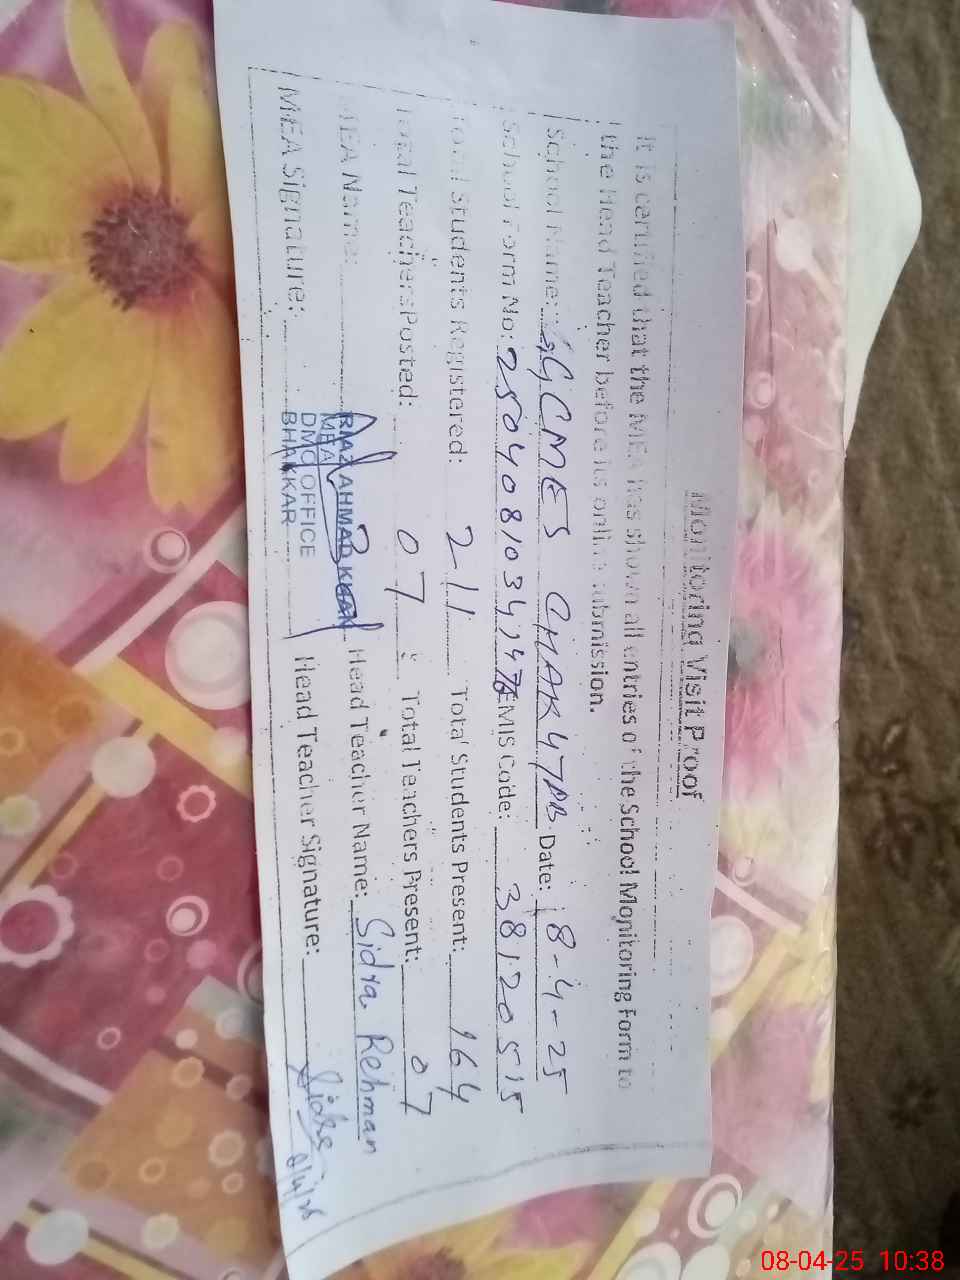 Monitoring Visit Proof
It is certified that the MEA has shown all entries of the School Monitoring Form to
the Head Teacher before its online submission.
School Name: GGCMES CHAK 47DB Date: 8-4-25
School Form No: EMIS Code: 38120515
Total Students Registered: 211 Total Students Present: 164
Total Teachers Posted: 07 Total Teachers Present: 07
MEA Name: RIAZ AHMAD KHAN Head Teacher Name: Sidra Rehman
MEA
DMO OFFICE
BHAKKAR
MEA Signature: Head Teacher Signature: Sidra
08-04-25 10:38